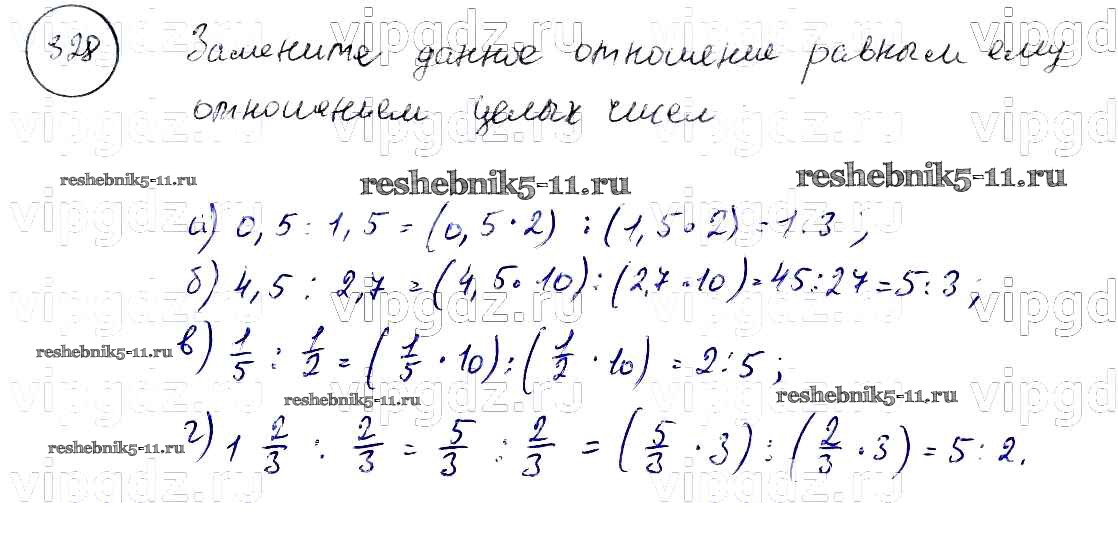 328 Замените данное отношение равным ему
отношением целых чисел
reshebnik5-11.ru reshebnik5-11.ru reshebnik5-11.ru
а) 0,5 : 1,5 = (0,5 · 2) : (1,5 · 2) = 1 : 3 ;
б) 4,5 : 2,7 = (4,5 · 10) : (2,7 · 10) = 45 : 27 = 5 : 3 ;
reshebnik5-11.ru в) 1/5 : 1/2 = (1/5 · 10) : (1/2 · 10) = 2 : 5 ;
reshebnik5-11.ru reshebnik5-11.ru
reshebnik5-11.ru г) 1 2/3 : 2/3 = 5/3 : 2/3 = (5/3 · 3) : (2/3 · 3) = 5 : 2.
vipgdz.ru